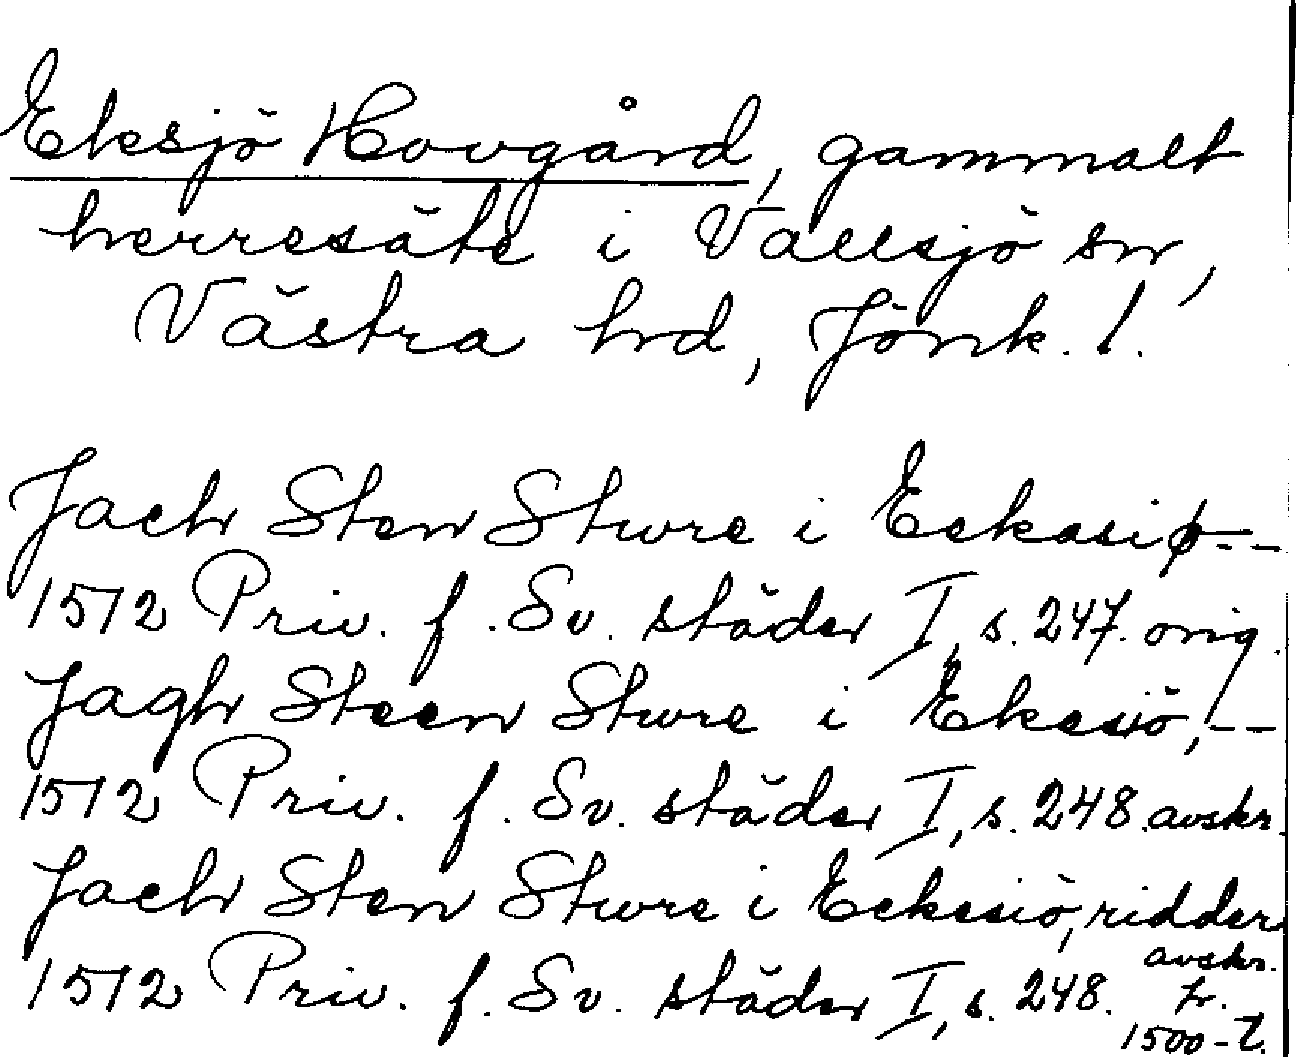 Eksjö Hovgård, gammalt
herresäte i Vallsjö sn,
Västra hd, Jönk. l.
Jach Sten Sture i Eckasiø--
1512 Priv. f. Sv. städer I, s. 247. orig.
Jagh Steen Sture i Ekesiö,--
1512 Priv. f. Sv. städer I, s. 248. avskr.
Jach Sten Sture i Eckesiö, ridder
1512 Priv. f. Sv. städer I, s. 248. avskr.
fr.
1500-t.